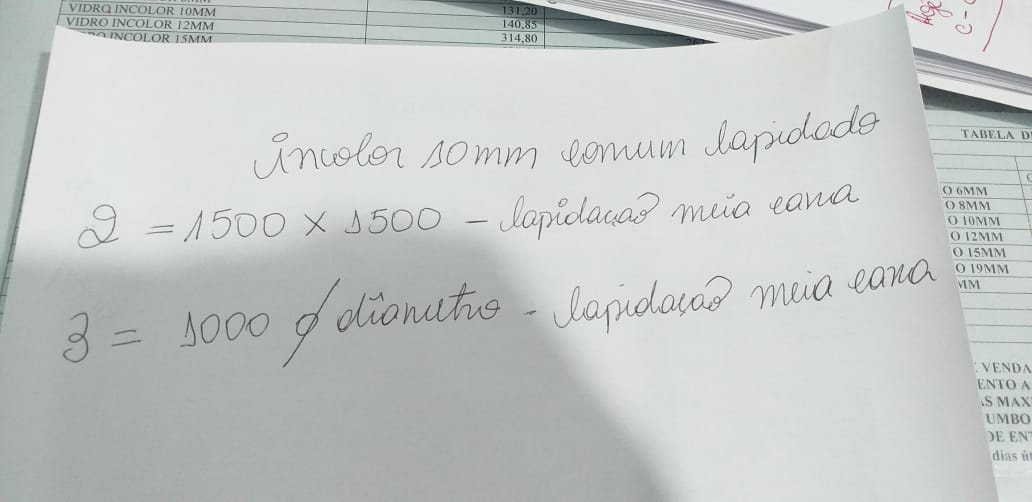 VIDRO INCOLOR 10MM 131,20
VIDRO INCOLOR 12MM 140,85
INCOLOR 15MM 314,80
TABELA D
O 6MM
O 8MM
O 10MM
O 12MM
O 15MM
O 19MM
MM
incolor 10mm comum lapidado
2 = 1500 x 1500 - lapidação meia cana
3 = 1000 ∅ diâmetro - lapidação meia cana
VENDA
ENTO A
S MAX
UMBO
DE EN
dias